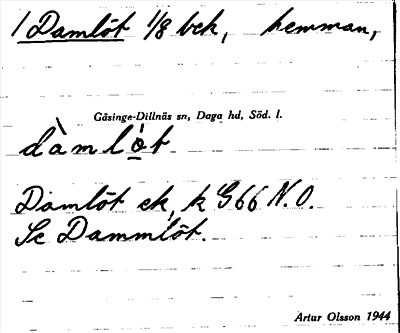 1 Damlöt 1/8 bek, hemman,
Gåsinge-Dillnäs sn, Daga hd, Söd. l.
dàmlö̀t
Damlöt ek, k G66 N.O.
Se Dammlöt.
Artur Olsson 1944